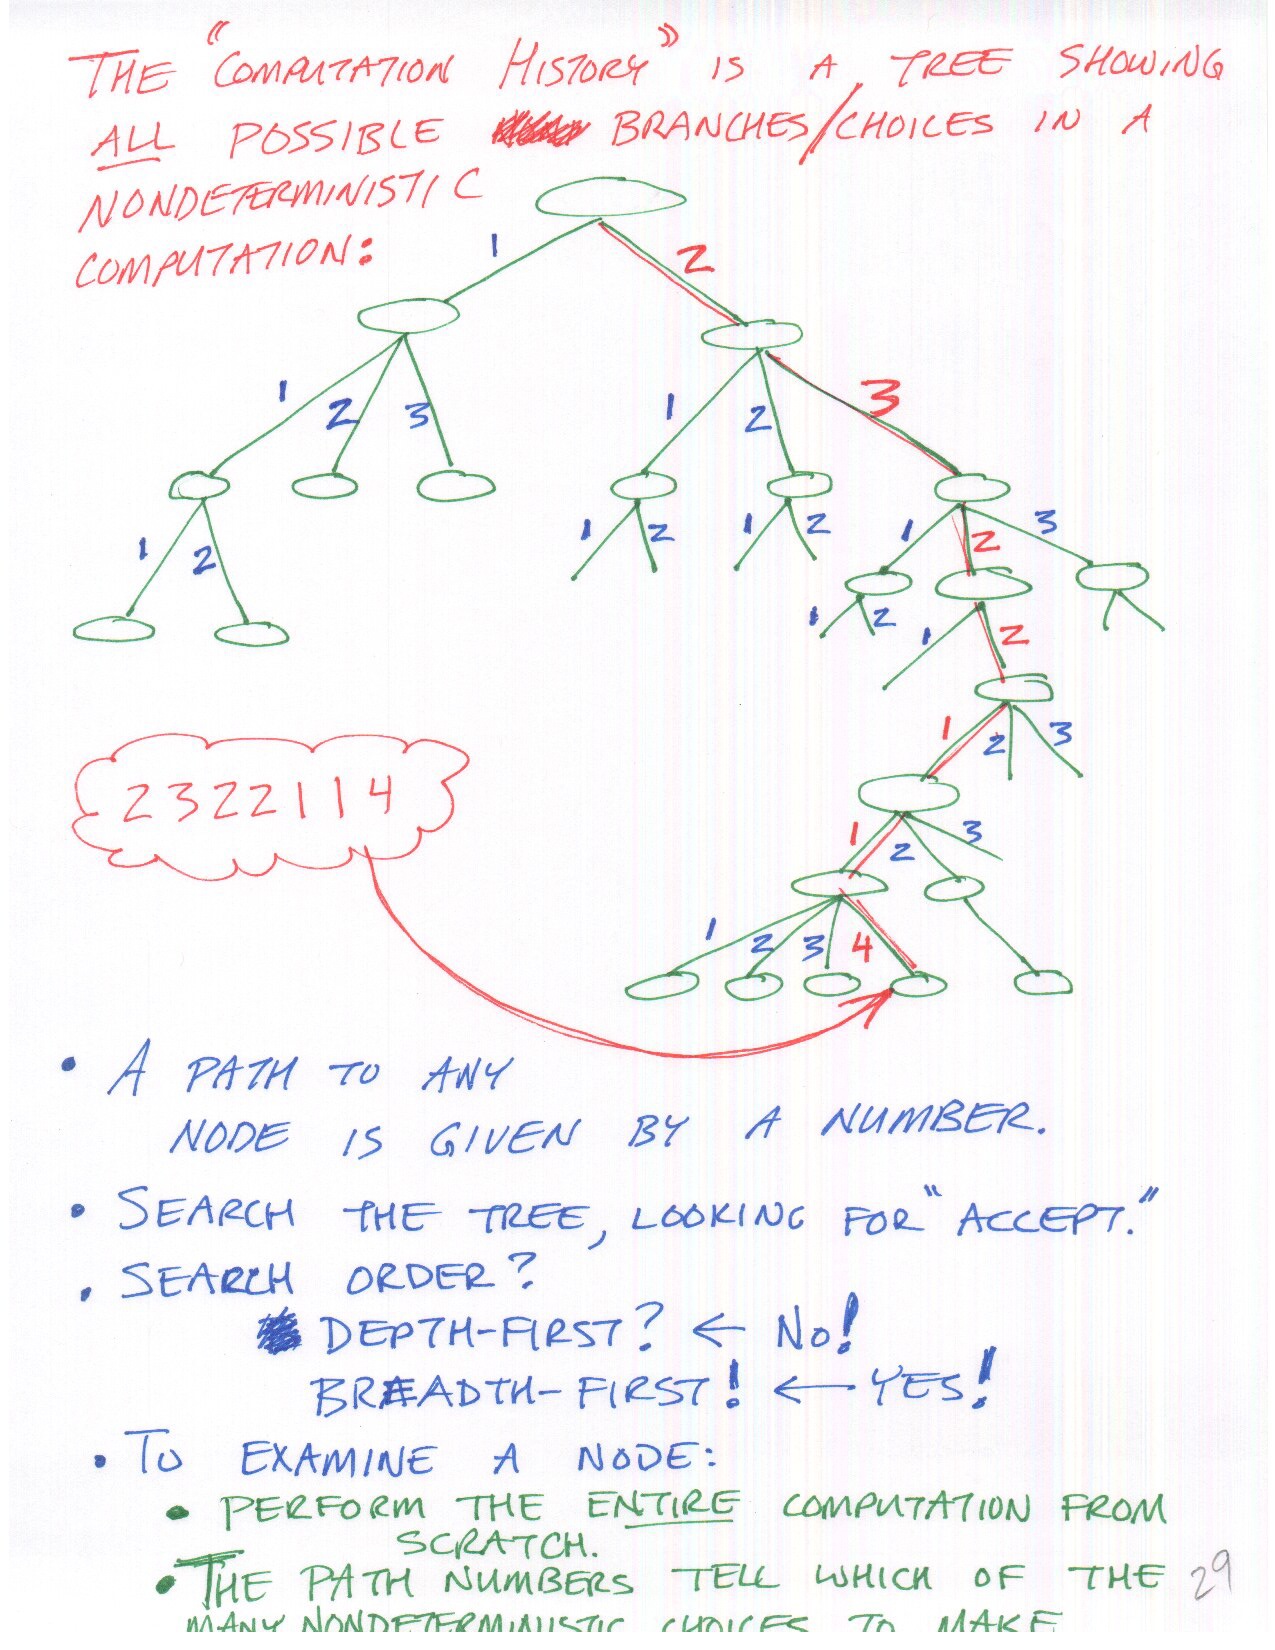 THE "COMPUTATION HISTORY" IS A TREE SHOWING
ALL POSSIBLE BRANCHES/CHOICES IN A
NONDETERMINISTIC
COMPUTATION:
1 2
1 2 3 1 2 3
1 2 1 2 1 2 1 2 3
1 2 1 2
1 2 3
2322114
1 2 3
1 2 3 4
• A PATH TO ANY
NODE IS GIVEN BY A NUMBER.
• SEARCH THE TREE, LOOKING FOR "ACCEPT."
• SEARCH ORDER?
DEPTH-FIRST? ← NO!
BREADTH-FIRST! ← YES!
• TO EXAMINE A NODE:
• PERFORM THE ENTIRE COMPUTATION FROM
SCRATCH.
• THE PATH NUMBERS TELL WHICH OF THE
29
MANY NONDETERMINISTIC CHOICES TO MAKE